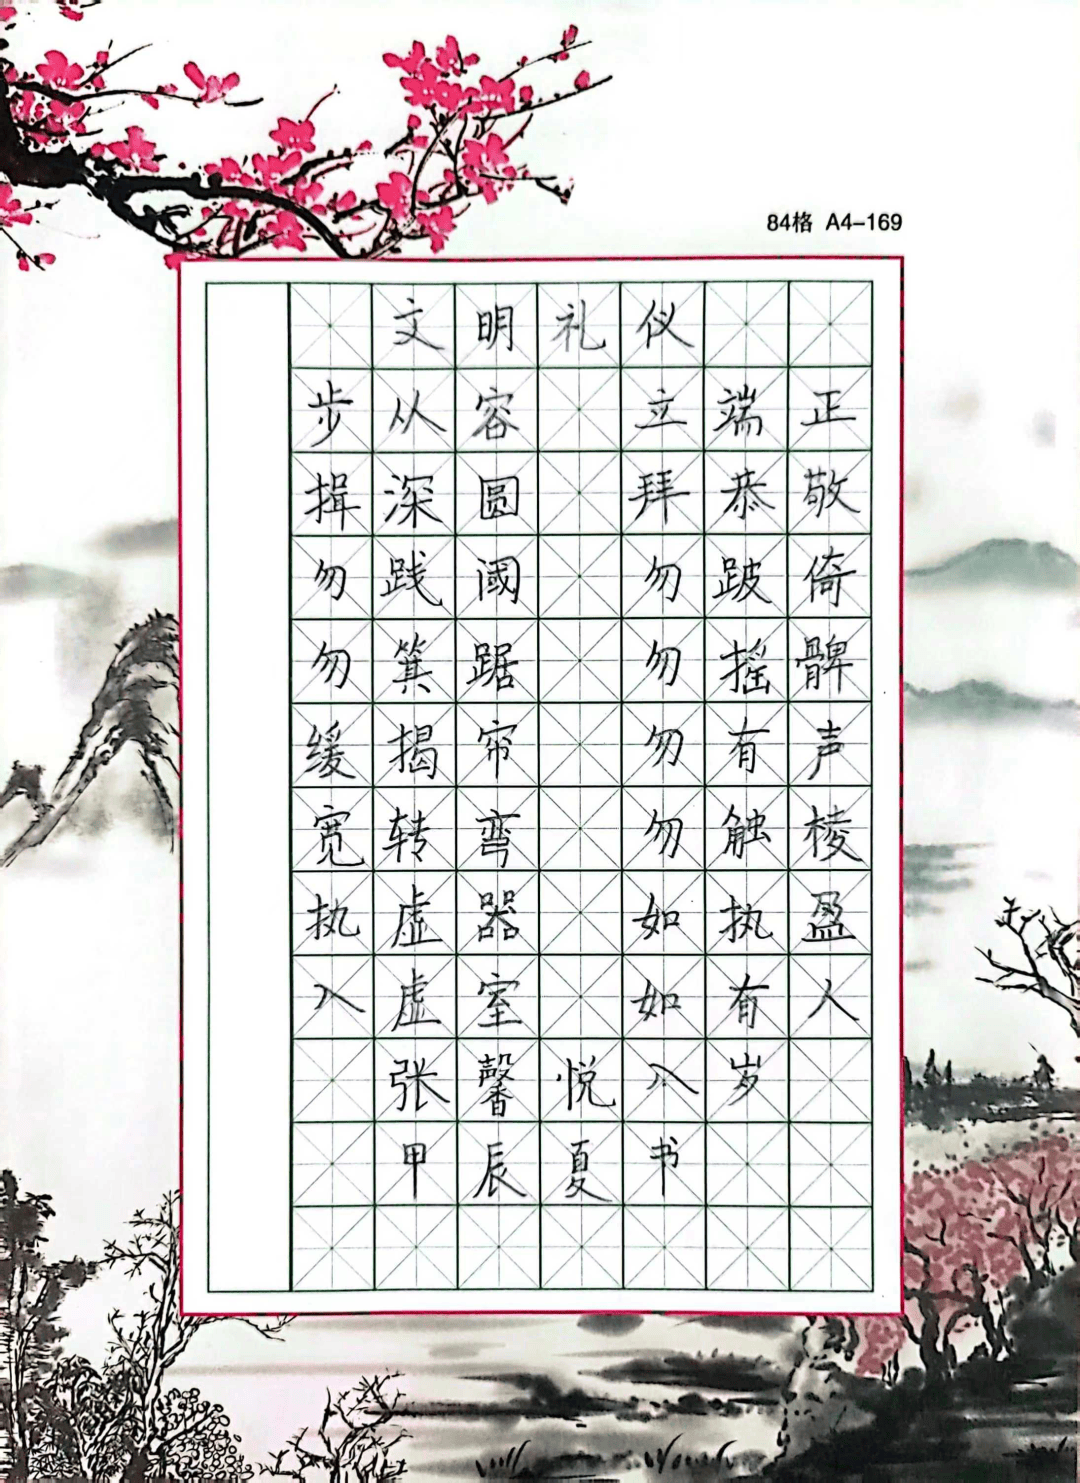 84格 A4-169
文明礼仪
步从容 立端正
揖深圆 拜恭敬
勿践阈 勿跛倚
勿箕踞 勿摇髀
缓揭帘 勿有声
宽转弯 勿触棱
执虚器 如执盈
入虚室 如有人
张馨悦 八岁
甲辰夏书